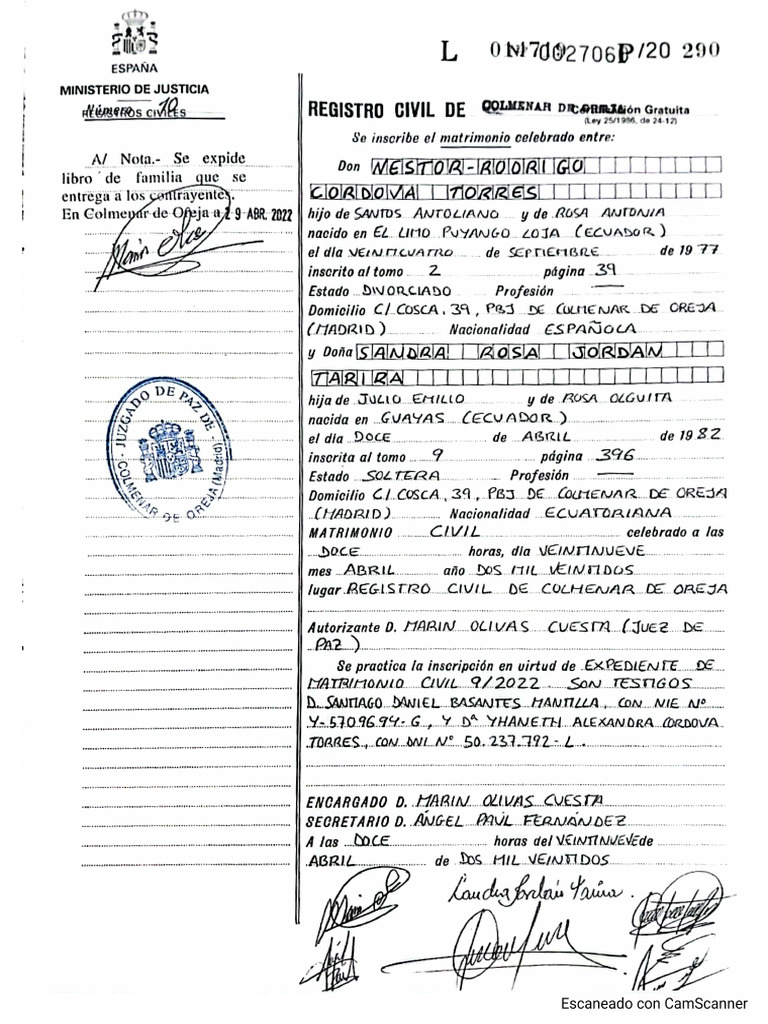 L
P/20 290
ESPAÑA
MINISTERIO DE JUSTICIA
Número 10
REGISTROS CIVILES
REGISTRO CIVIL DE COLMENAR DE OREJA
Gratuita
(Ley 25/1986, de 24-12)
A/ Nota.- Se expide
libro de familia que se
entrega a los contrayentes.
En Colmenar de Oreja a 29 ABR. 2022
JUZGADO DE PAZ DE
COLMENAR DE OREJA (Madrid)
Se inscribe el matrimonio celebrado entre:
Don NESTOR-RODRIGO
CORDOVA TORRES
hijo de SANTOS ANTOLIANO y de ROSA ANTONIA
nacido en EL LIMO PUYANGO LOJA (ECUADOR)
el día VEINTICUATRO de SEPTIEMBRE de 1977
inscrito al tomo 2 página 39
Estado DIVORCIADO Profesión —
Domicilio C/ COSCA, 39, PBJ DE COLMENAR DE OREJA
(MADRID) Nacionalidad ESPAÑOLA
y Doña SANDRA ROSA JORDAN
TARIRA
hija de JULIO EMILIO y de ROSA OLGUITA
nacida en GUAYAS (ECUADOR)
el día DOCE de ABRIL de 1982
inscrita al tomo 9 página 396
Estado SOLTERA Profesión —
Domicilio C/ COSCA, 39, PBJ DE COLMENAR DE OREJA
(MADRID) Nacionalidad ECUATORIANA
MATRIMONIO CIVIL celebrado a las
DOCE horas, día VEINTINUEVE
mes ABRIL año DOS MIL VEINTIDOS
lugar REGISTRO CIVIL DE COLMENAR DE OREJA
Autorizante D. MARIN OLIVAS CUESTA (JUEZ DE
PAZ)
Se practica la inscripción en virtud de EXPEDIENTE DE
MATRIMONIO CIVIL 9/2022. SON TESTIGOS
D. SANTIAGO DANIEL BASANTES MANTILLA, CON NIE Nº
Y-5709694-G, Y Dª YHANETH ALEXANDRA CORDOVA
TORRES, CON DNI Nº 50.237.792-L.
ENCARGADO D. MARIN OLIVAS CUESTA
SECRETARIO D. ÁNGEL PAÚL FERNÁNDEZ
A las DOCE horas del VEINTINUEVE de
ABRIL de DOS MIL VEINTIDOS
Escaneado con CamScanner